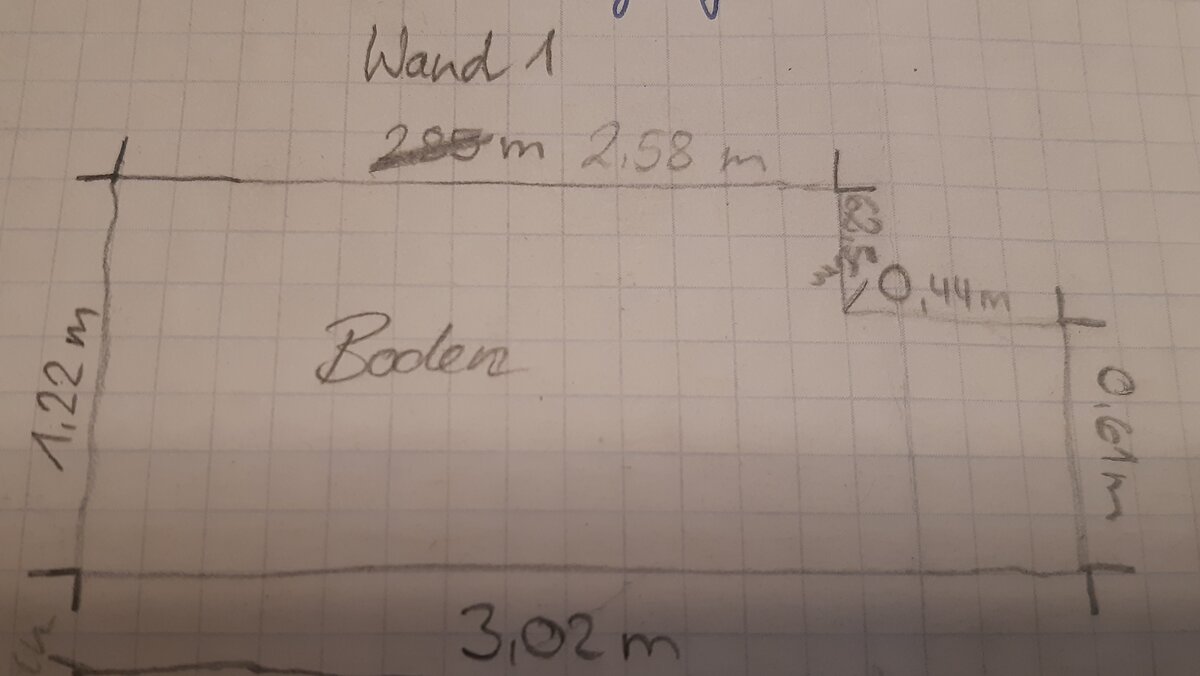 Wand 1
285 m 2,58 m
62,5
0,44 m
1,22 m
Boden
0,61 m
3,02 m